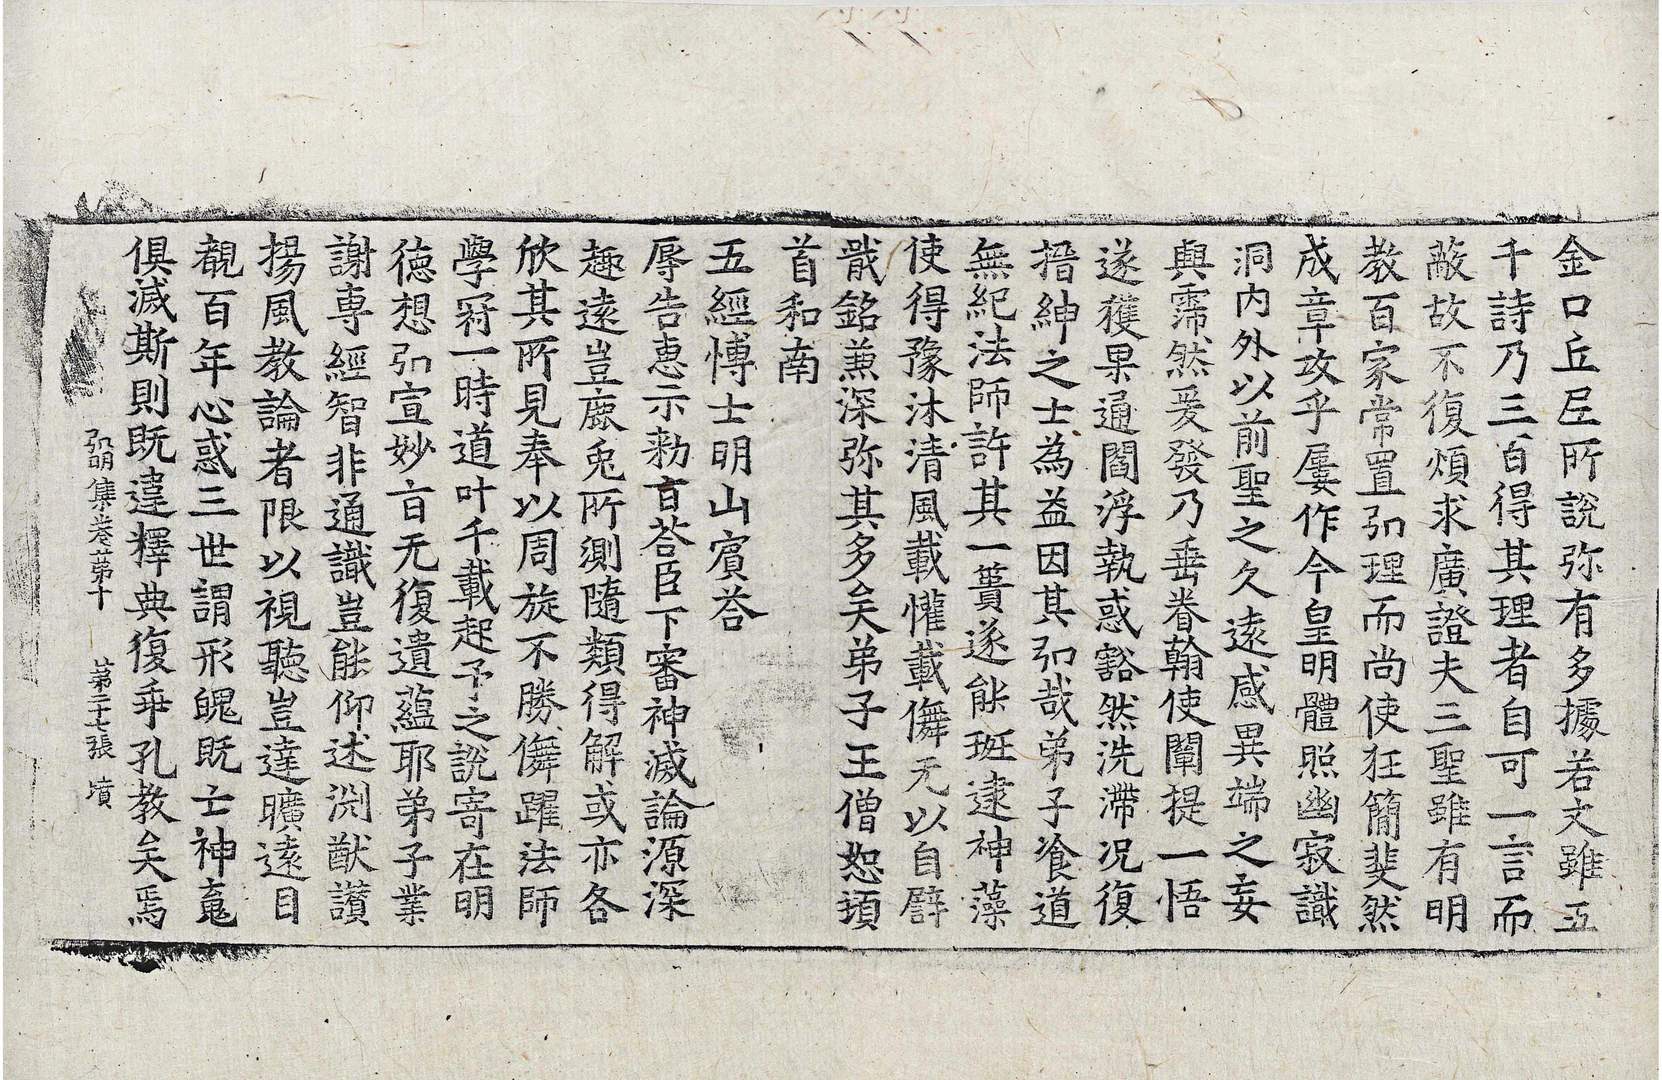 金口丘𡰱所說弥有多據若文雖五
千詩乃三百得其理者自可一言而
蔽故不復煩求廣證夫三聖雖有明
教百家常置弘理而尚使狂簡斐然
成章攻乎屢作今皇明體照幽寂識
洞內外以前聖之久遠感異端之妄
與霈然爰發乃垂眷翰使闡提一悟
遂獲果通閻浮執惑豁然洗滯况復
搢紳之士為益因其弘哉弟子飡道
無紀法師許其一簣遂能班逮神藻
使得豫沐清風載懽載儛无以自譬
戢銘兼深弥其多矣弟子王僧恕頊
首和南
五經博士明山賓荅
辱告惠示勑旨荅臣下審神滅論源深
趣遠豈鹿兎所測隨類得解或亦各
欣其所見奉以周旋不勝儛躍法師
學冠一時道叶千載起予之說寄在明
德想弘宣妙旨无復遺蘊耶弟子業
謝専經智非通識豈能仰述淵猷讃
揚風教論者限以視聽豈達曠遠目
覩百年心惑三世謂形魄既亡神䰟
俱滅斯則既違釋典復乖孔教矣焉
弘明集卷第十 第二十七張 墳